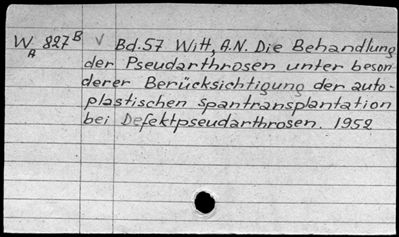 W 827ᴮ √ Bd.57 Witt, A.N. Die Behandlung
A der Pseudarthrosen unter beson
derer Berücksichtigung der auto-
plastischen Spantransplantation
bei Defektpseudarthrosen. 1952